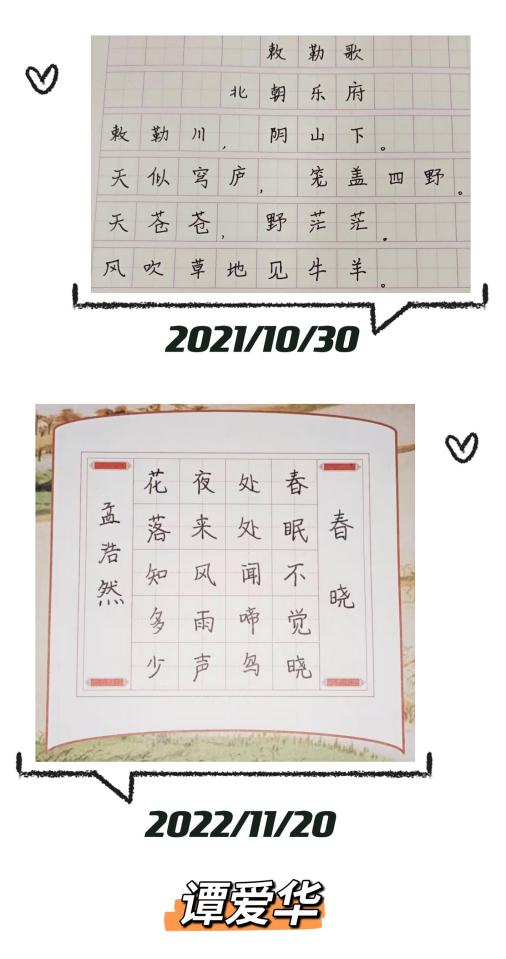 敕勒歌
北朝乐府
敕勒川，阴山下。
天似穹庐，笼盖四野。
天苍苍，野茫茫。
风吹草地见牛羊。
2021/10/30
春晓
春眠不觉晓
处处闻啼鸟
夜来风雨声
花落知多少
孟浩然
2022/11/20
谭爱华